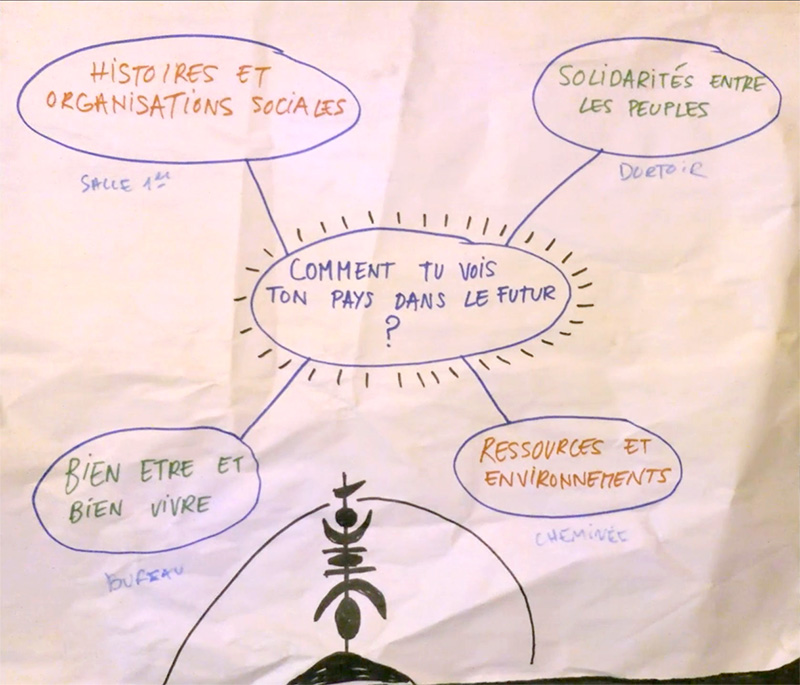 HISTOIRES ET
ORGANISATIONS SOCIALES
SALLE 1er
SOLIDARITÉS ENTRE
LES PEUPLES
DORTOIR
COMMENT TU VOIS
TON PAYS DANS LE FUTUR
?
BIEN ETRE ET
BIEN VIVRE
BUREAU
RESSOURCES ET
ENVIRONNEMENTS
CHEMINÉE